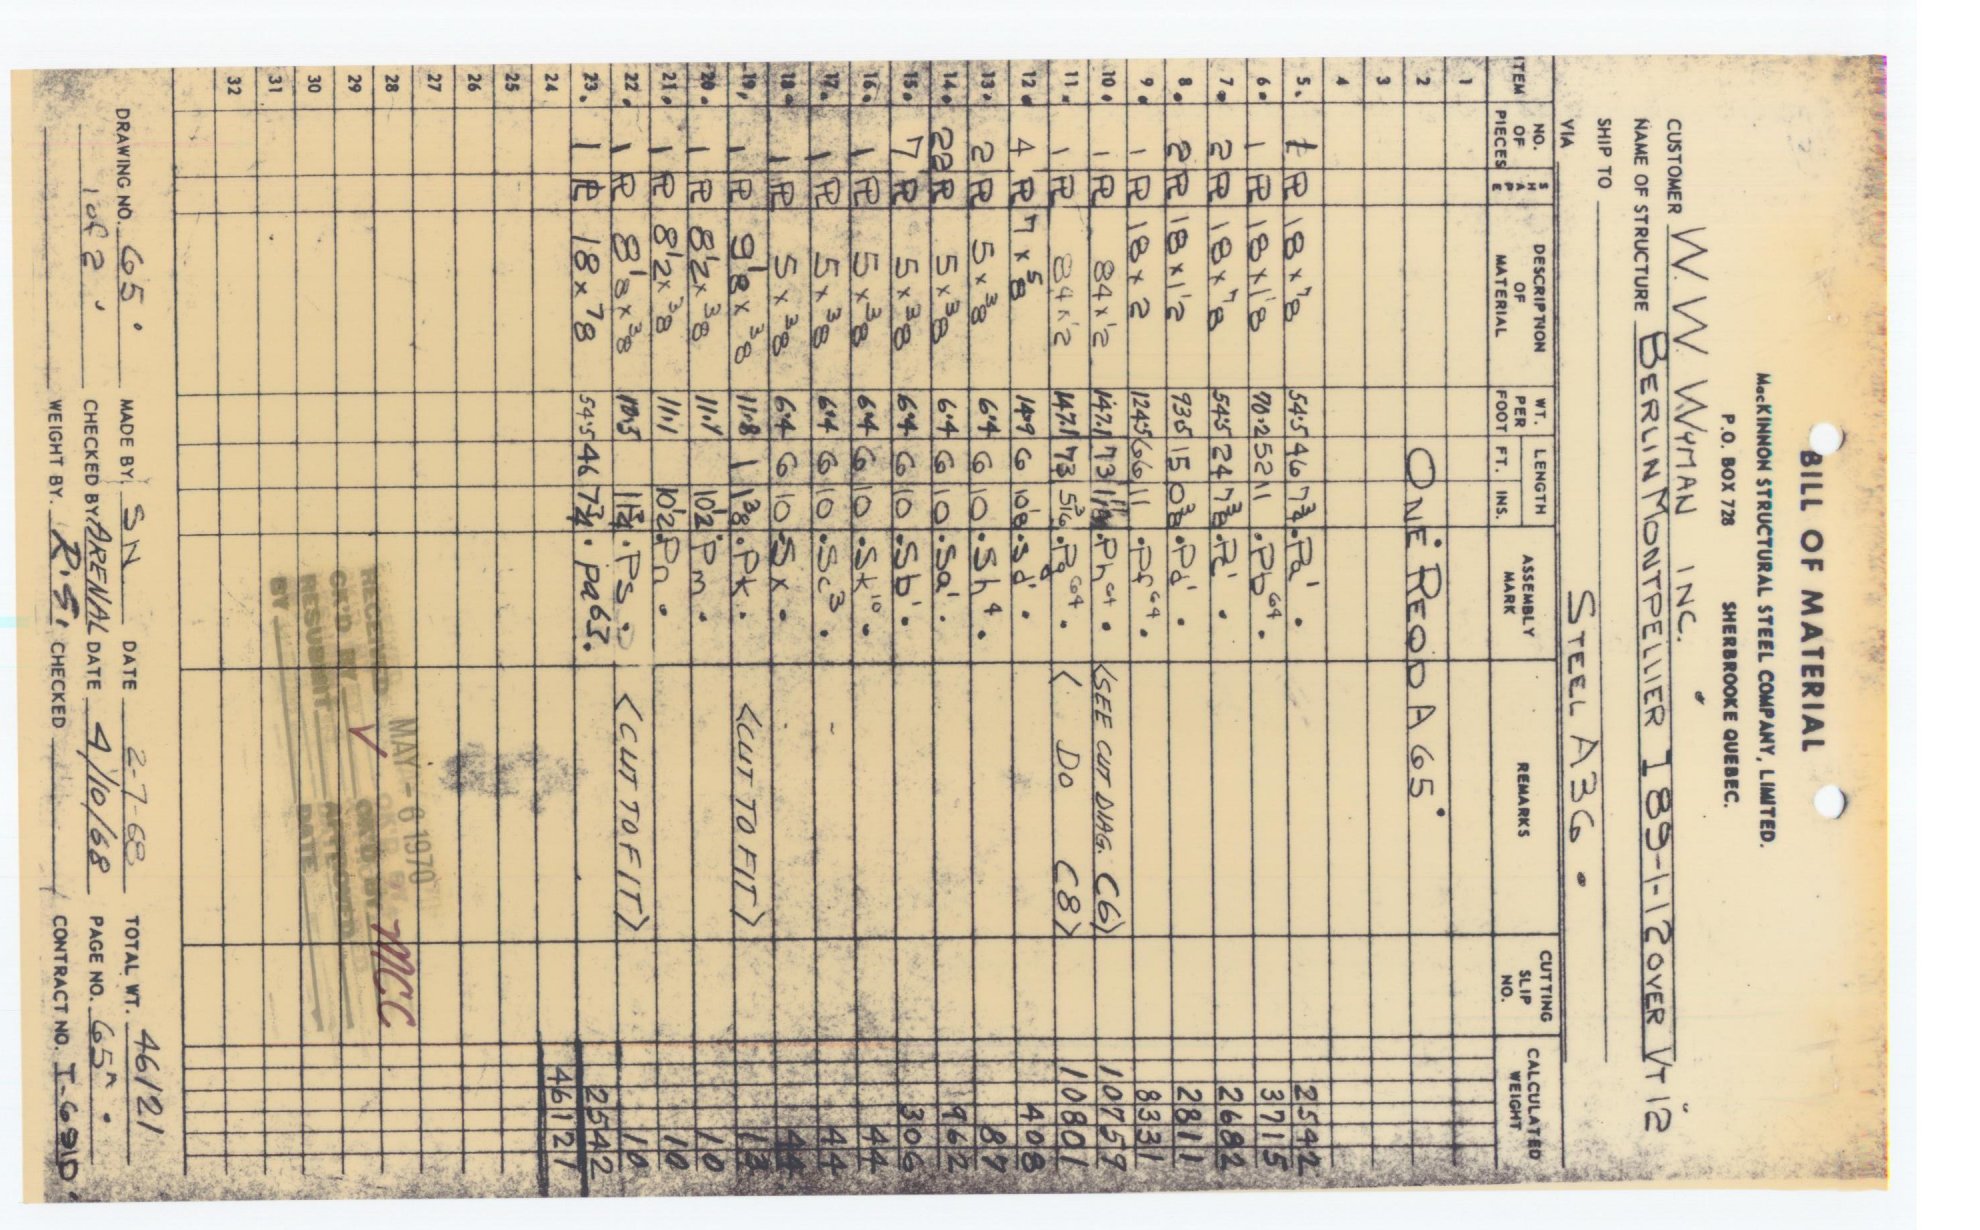 BILL OF MATERIAL
MacKINNON STRUCTURAL STEEL COMPANY, LIMITED.
P.O. BOX 728 SHERBROOKE QUEBEC.
CUSTOMER W. W. WYMAN INC.
NAME OF STRUCTURE BERLIN MONTPELLIER I 89-1-12 OVER VT 12
SHIP TO
VIA STEEL A36.
ITEM NO. OF PIECES SHAPE DESCRIPTION OF MATERIAL WT. PER FOOT LENGTH FT. INS. ASSEMBLY MARK REMARKS CUTTING SLIP NO. CALCULATED WEIGHT
1
2 ONE REQD A65
3
4
5. 1 PL 18 x 7/8 54.5 46 7 3/4 . Pa' . 2542
6. 1 PL 18 x 1 1/8 70.2 52 11 . Pb64 . 3715
7. 2 PL 18 x 7/8 54.5 24 7 3/8 . Pc' . 2682
8. 2 PL 18 x 1 1/2 93.5 15 0 3/8 . Pd' . 2811
9. 1 PL 18 x 2 124.5 66 11 . Pf64 . 8331
10. 1 PL 84 x 1/2 147.1 73 . Ph64 . <SEE CUT DIAG. C6> 10759
11. 1 PL 84 x 1/2 147.1 73 5 3/16 . Pg64 . < DO C8> 10801
12. 4 PL 7 x 5/8 14.9 6 10 1/8 . Sd' . 408
13. 2 PL 5 x 3/8 6.4 6 10 . Sh4 . 87
14. 22 PL 5 x 3/8 6.4 6 10 . Sa' . 962
15. 7 PL 5 x 3/8 6.4 6 10 . Sb' . 306
16. 1 PL 5 x 3/8 6.4 6 10 . Sk10 . 44
17. 1 PL 5 x 3/8 6.4 6 10 . Sc3 . 44
18. 1 PL 5 x 3/8 6.4 6 10 . Sx . 44
19. 1 PL 9 1/8 x 3/8 11.8 1 1 3/8 . Pk . <CUT TO FIT> 13
20. 1 PL 8 1/2 x 3/8 11.1 10 1/2 . Pm . 10
21. 1 PL 8 1/2 x 3/8 11.1 10 1/2 . Pn . 10
22. 1 PL 8 1/8 x 3/8 10.5 11 3/4 . Ps . <CUT TO FIT> 10
23. 1 PL 18 x 7/8 54.5 46 7 3/4 . Pa63 . 2542
24 46121
25
26
27
28
29
30
31
32
MAY - 6 1970
RECEIVED
CK'D BY OK'D BY MCC
RESUBMIT V APPROVED
BY DATE
DRAWING NO. 65. MADE BY. SN DATE 2-7-68 TOTAL WT. 46121
1 of 2. CHECKED BY ARENAL DATE 4/10/68 PAGE NO. 65A .
WEIGHT BY. R.S. CHECKED CONTRACT NO. I-691D.